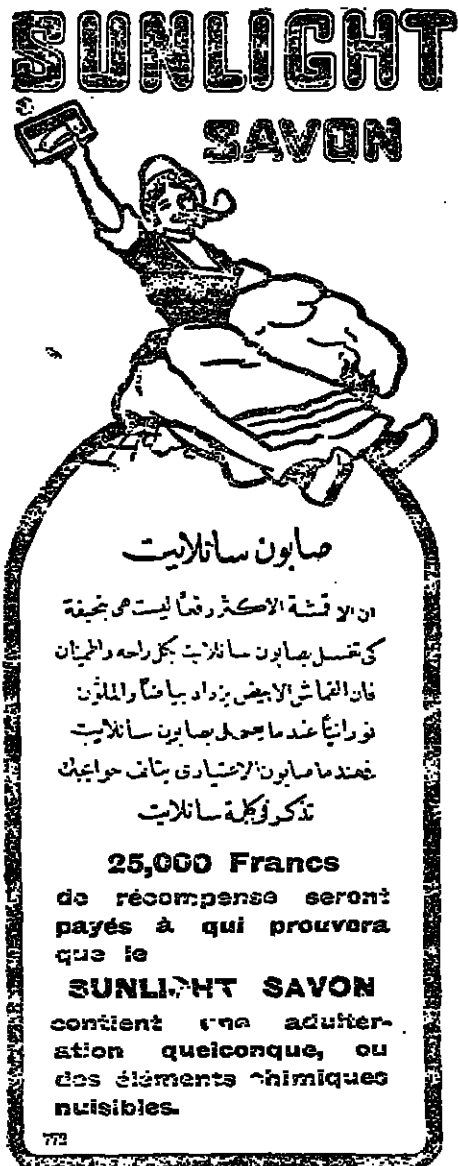 SUNLIGHT
SAVON
صابون سانلايت
ان الاقشة الاكثر رفعاً ليست هى بنحيفة
كى تغسل بصابون سانلايت بكل راحه واطمئنان
فان القماش الابيض يزداد بياضاً والملوّن
نورانيّاً عندما يعمل بصابون سانلايت
فعندما صابون الاعتيادى يتلف حوايجك
تذكر كلمة سانلايت
25,000 Francs
de récompense seront
payés à qui prouvera
que le
SUNLIGHT SAVON
contient une adulter-
ation quelconque, ou
des éléments chimiques
nuisibles.
772